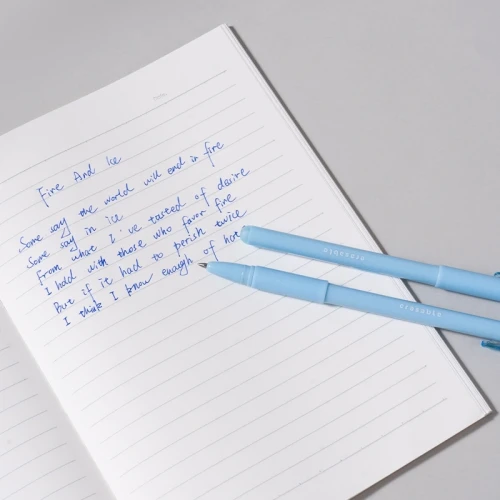 Fire And Ice
Some say the world will end in fire
Some say in ice
From what I've tasteed of desire
I hold with those who favor fire
But if it had to perish twice
I think I know enough of hate
erasable
erasable